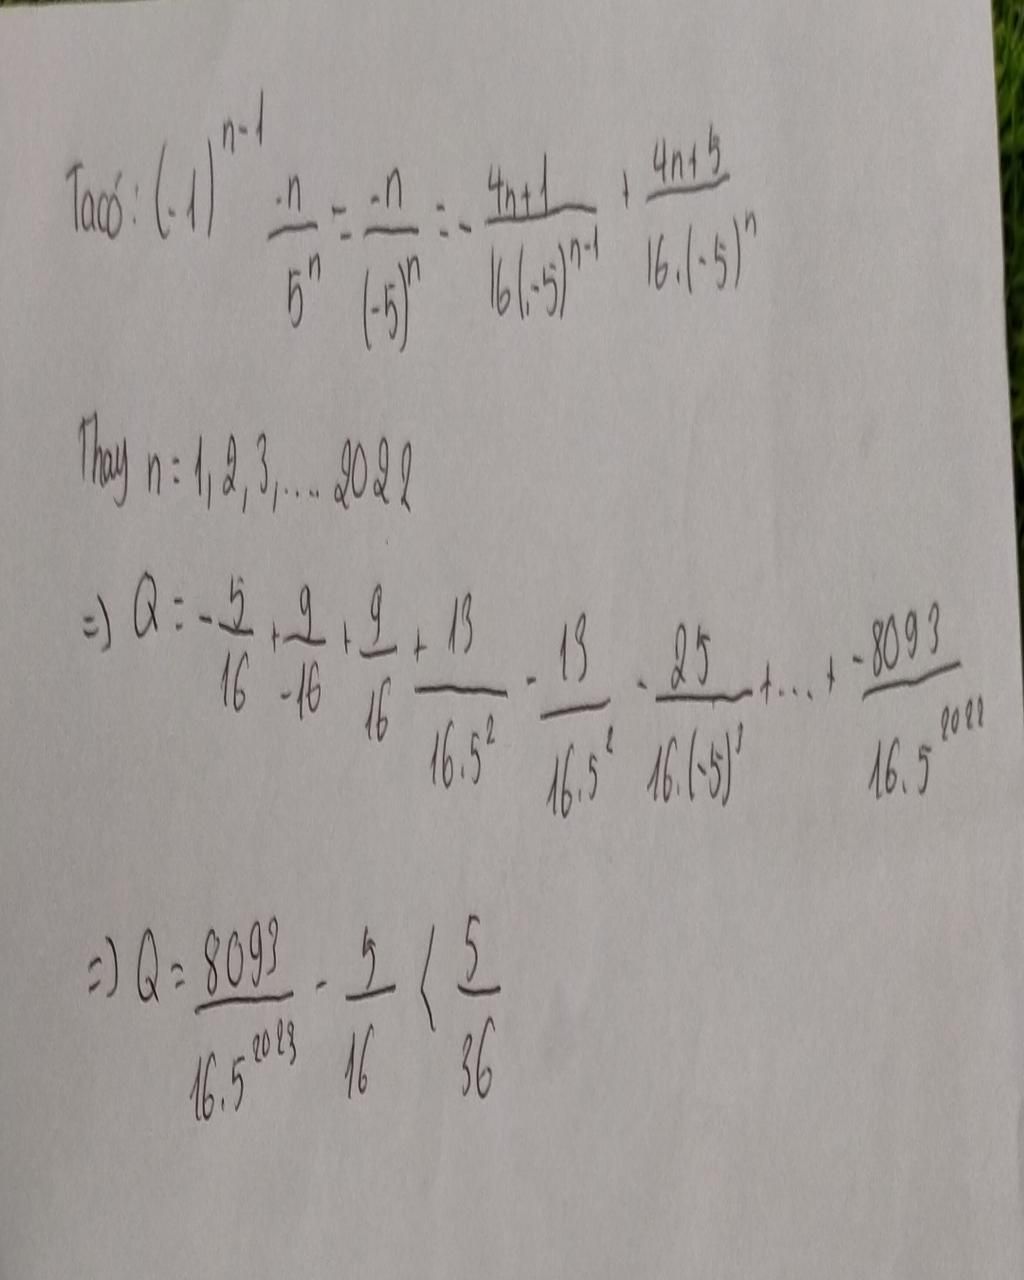 Ta có: (-1)^{n-1} \frac{-n}{5^n} = \frac{-n}{(-5)^n} = -\frac{4n+1}{16(-5)^{n-1}} + \frac{4n+5}{16.(-5)^n}
Thay n = 1, 2, 3, .... 2022
=) Q = -\frac{5}{16} + \frac{9}{-16} + \frac{9}{16} + \frac{13}{16.5^2} - \frac{13}{16.5^2} - \frac{25}{16.(-5)^3} + ... + \frac{-8093}{16.5^{2022}}
=) Q = \frac{8093}{16.5^{2023}} - \frac{5}{16} < \frac{5}{36}